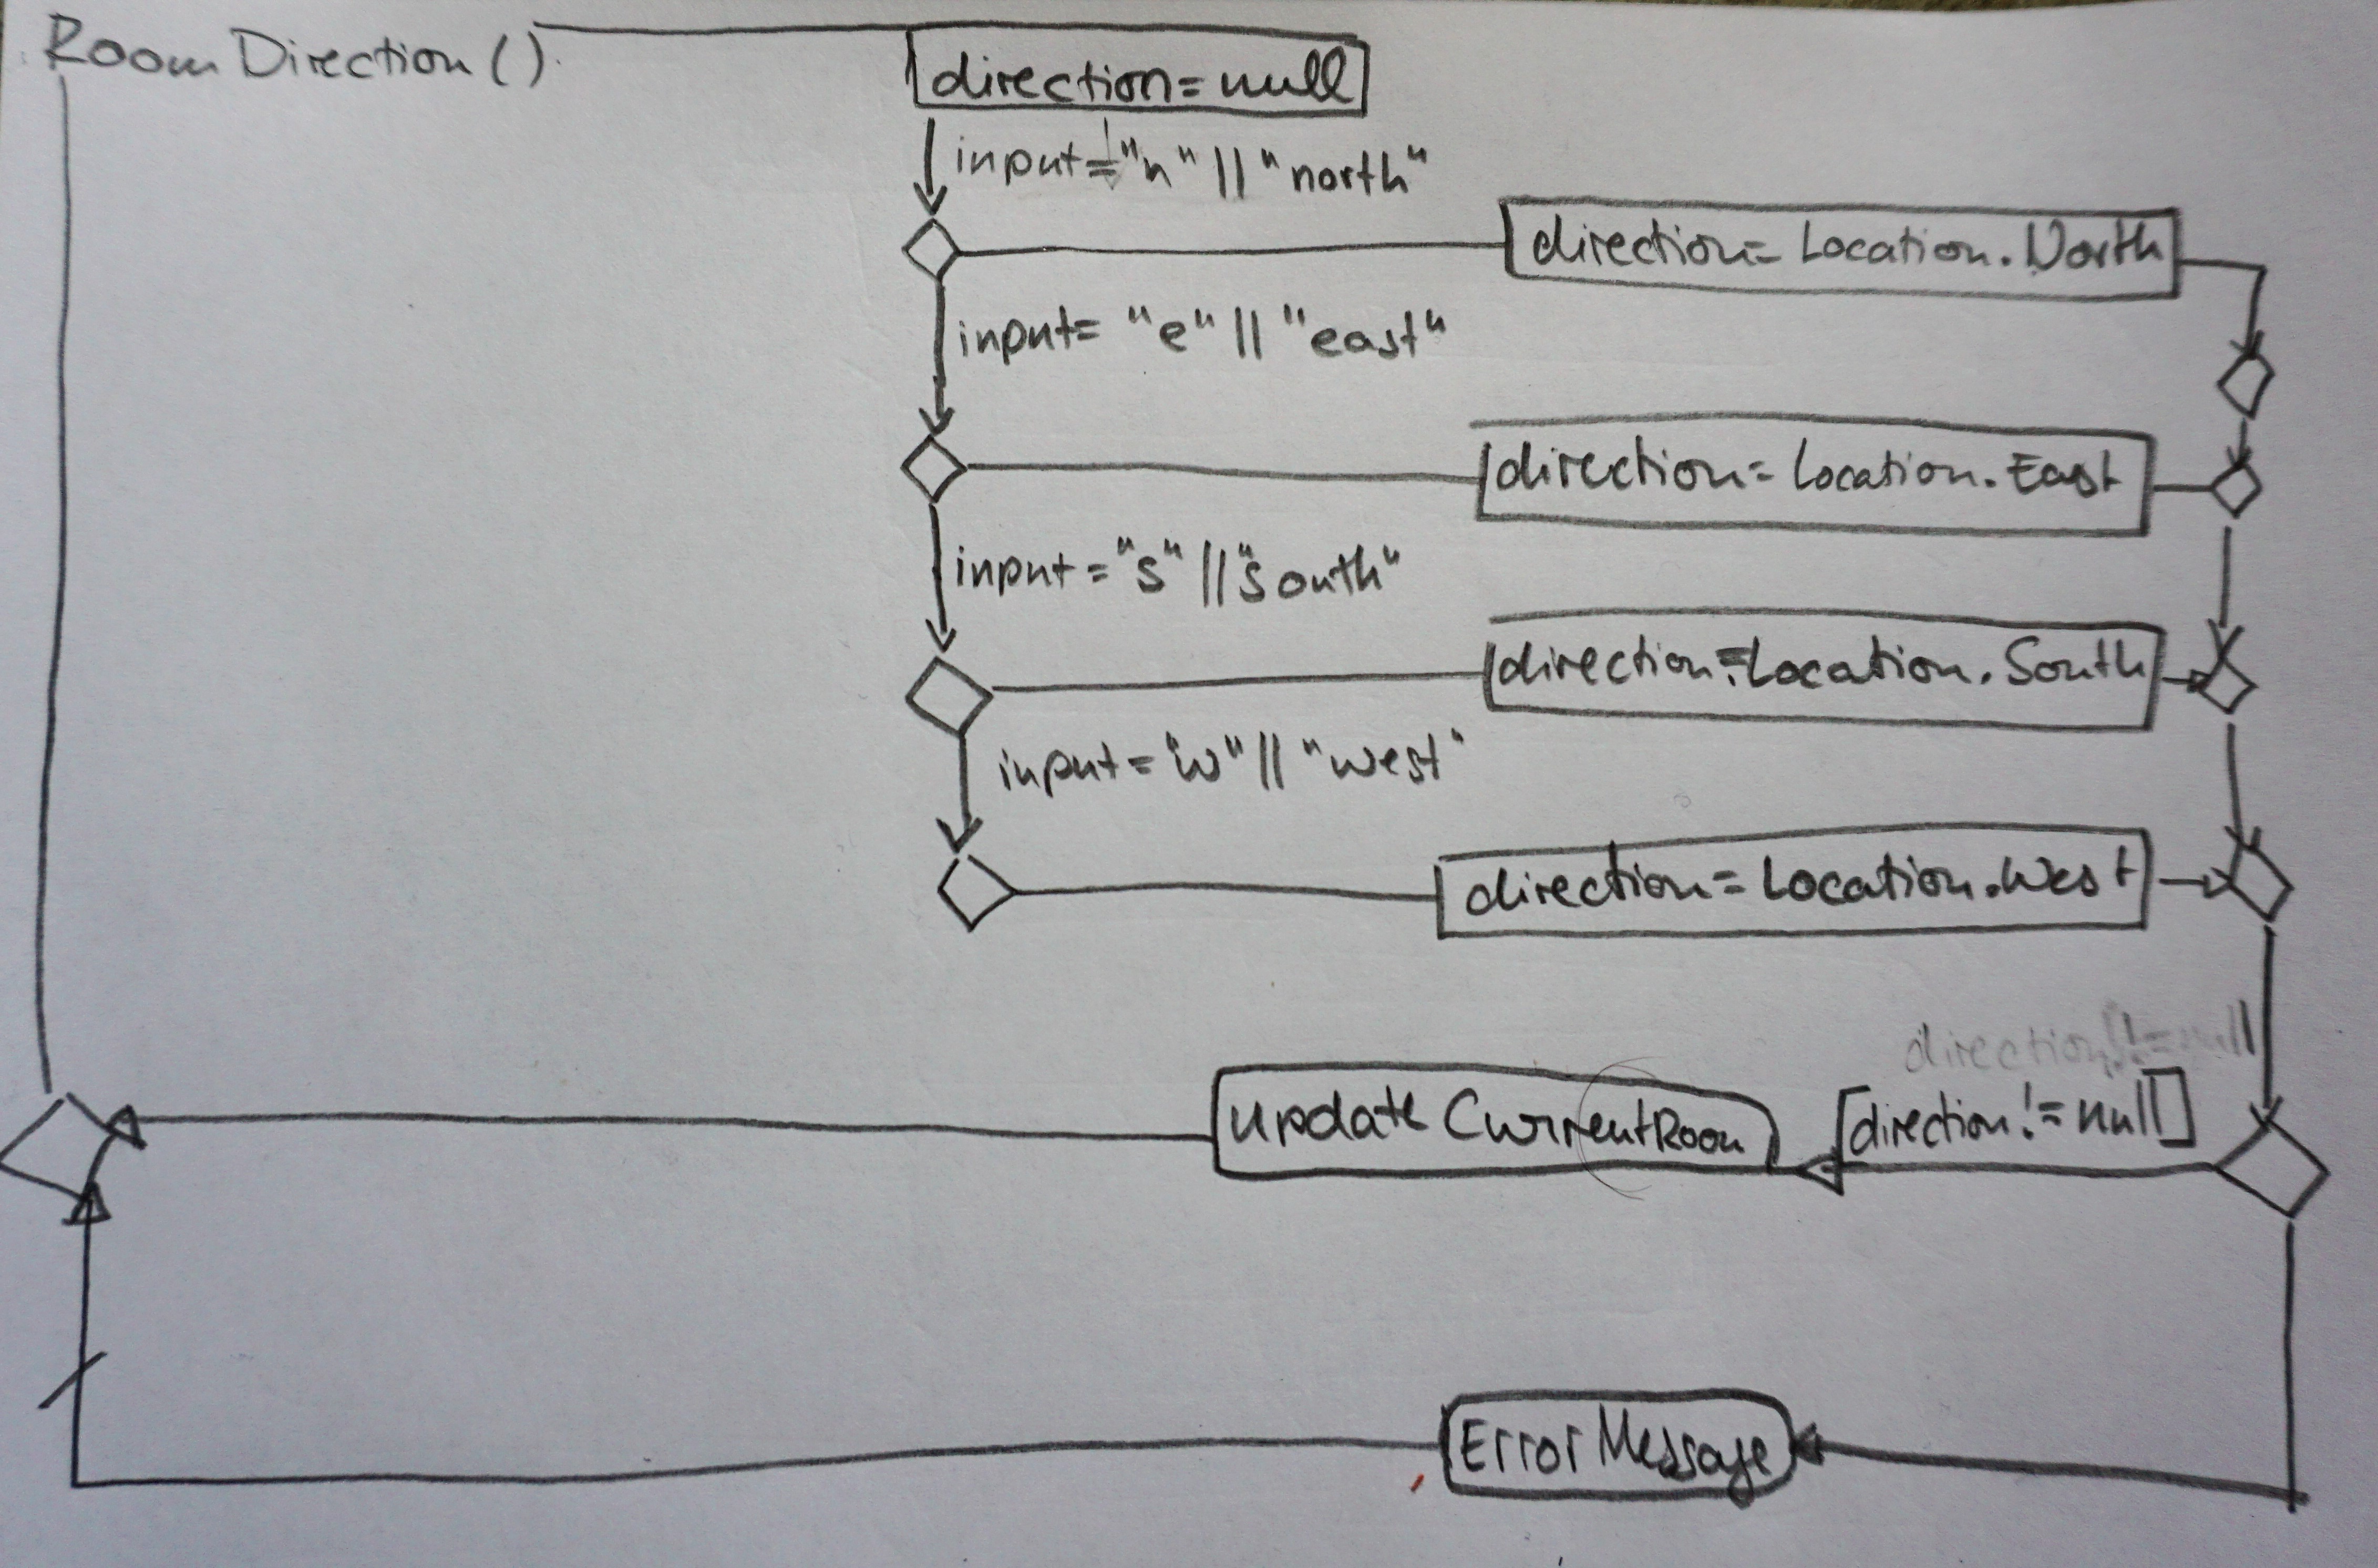 Room Direction ()
direction=null
input="n" || "north"
direction= Location.North
input= "e" || "east"
direction= Location.East
input="s" || "south"
direction=Location.South
input="w" || "west"
direction=Location.West
direction!=null
[direction!=null]
update CurrentRoom
Error Message